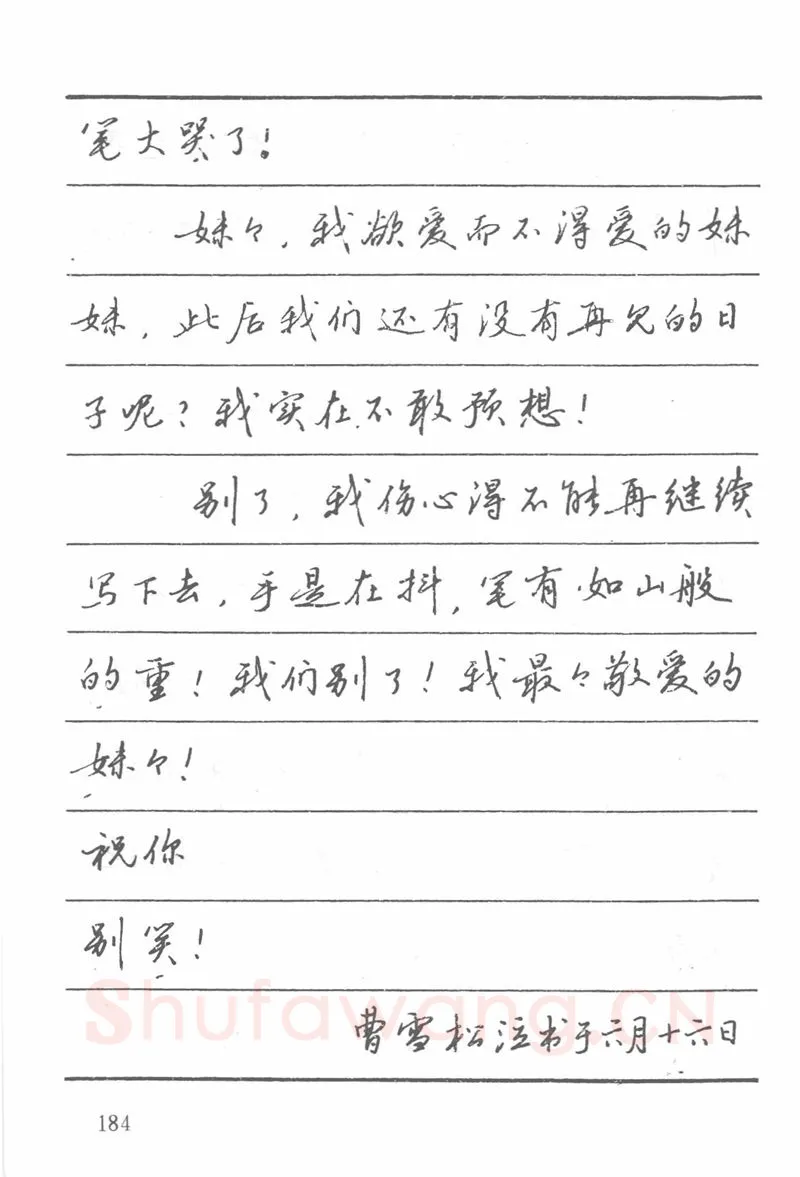 笔大哭了!
妹々，我欲爱而不得爱的妹
妹，此后我们还有没有再见的日
子呢？我实在不敢预想！
别了，我伤心得不能再继续
写下去，手是在抖，笔有如山般
的重！我们别了！我最々敬爱的
妹々！
祝你
别笑！
曹雪松泣书于六月十六日
Shufawang.CN
184